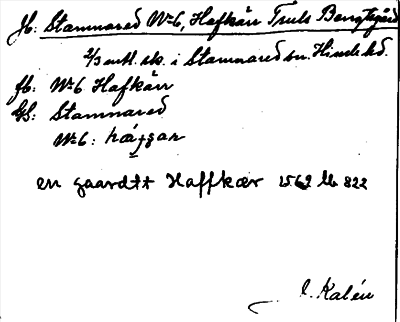 Jb: Stamnared Nr 6, Hafkärr Truls Bengtsgård
2/3 mtl. sk. i Stamnared sn. Himle hd.
fb: Nr 6 Hafkärr
GS: Stamnared
Nr 6:
en gaardtt Haffkær 1569 Lb 822
J. Kalén